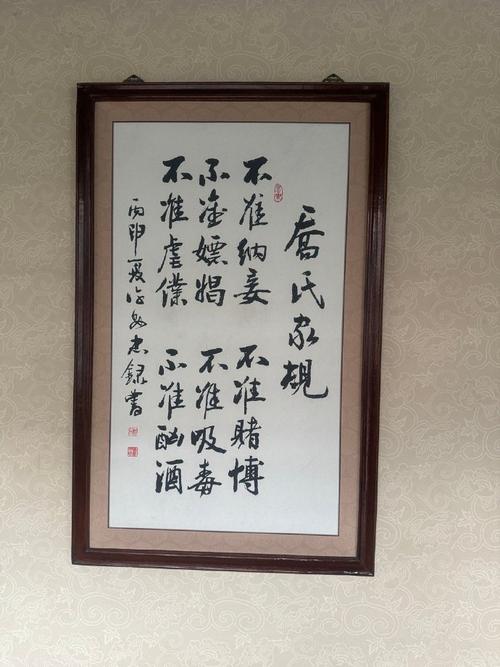 乔氏家规
不准纳妾 不准赌博
不准嫖娼 不准吸毒
不准虐仆 不准酗酒
丙申夏 忠録書